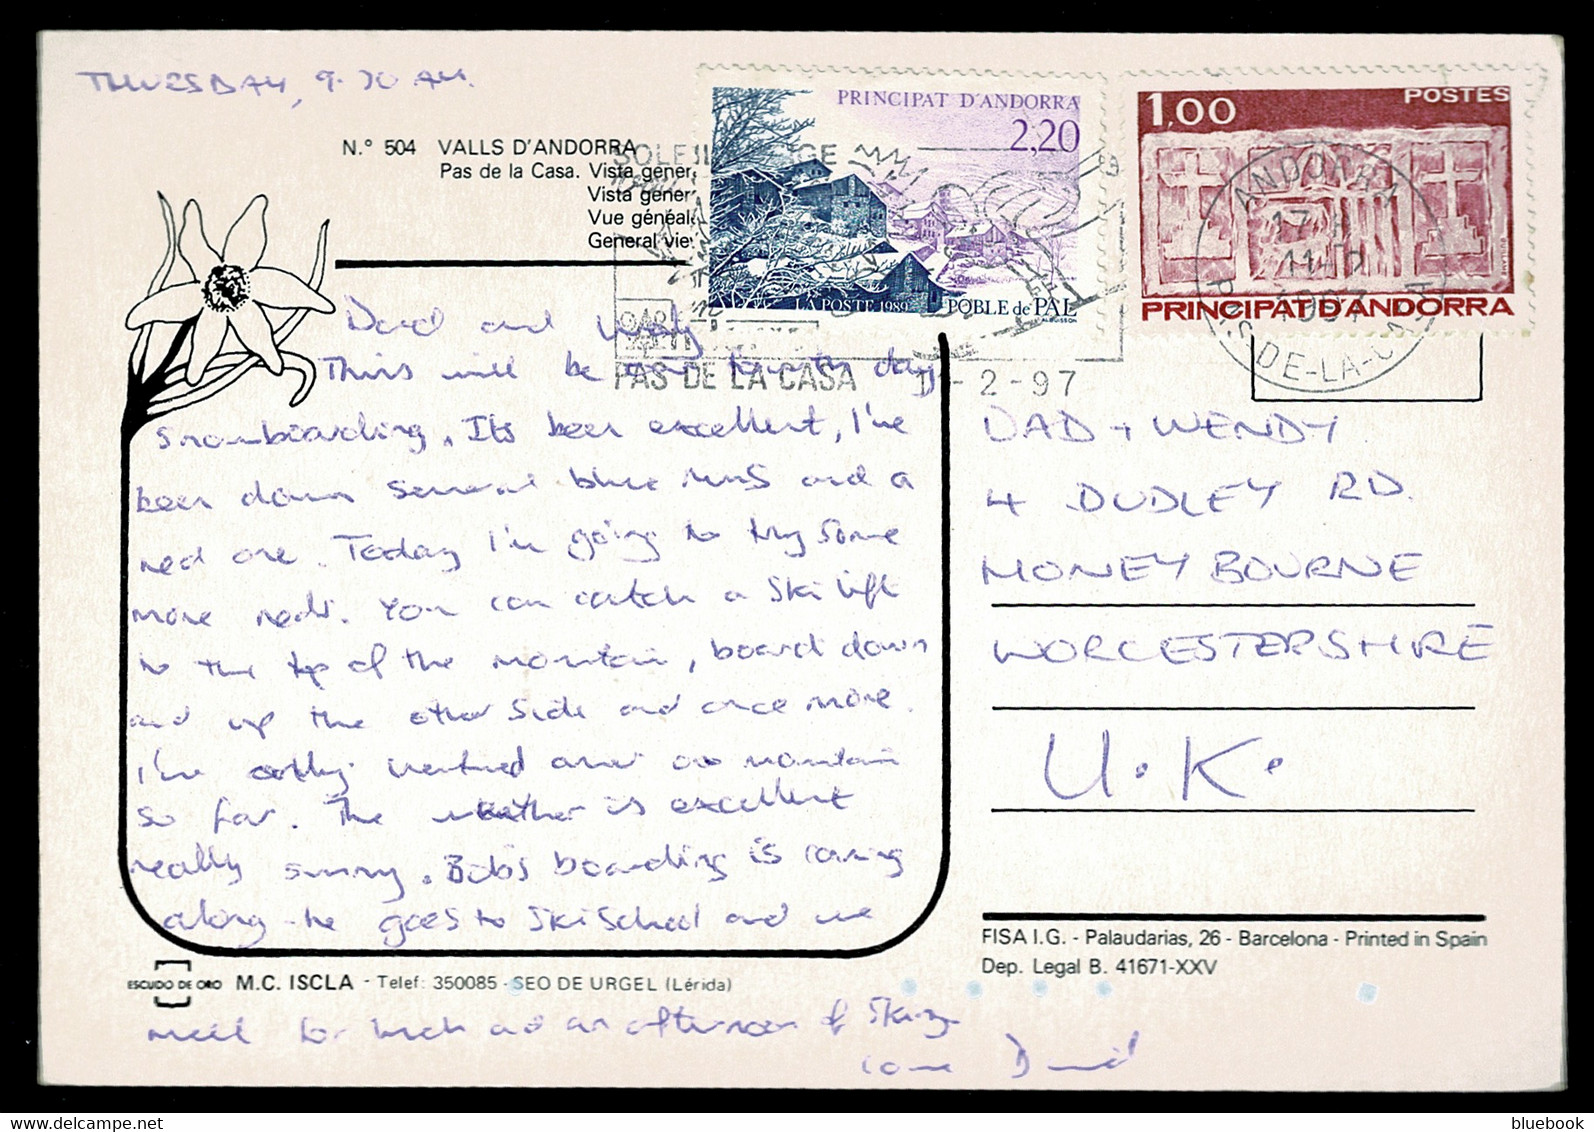 THURSDAY, 9.30 AM.
N.° 504 VALLS D'ANDORRA
Pas de la Casa. Vista gener
Vista gener
Vue généal
General vie
PRINCIPAT D'ANDORRA
2,20
LA POSTE 1989
POBLE de PAL
1,00 POSTES
PRINCIPAT D'ANDORRA
SOLEIL NEIGE
PAS DE LA CASA
-2-97
ANDORRA
17
11H
1997
PAS-DE-LA-CASA
Dad and Wendy
This will be our fourth day
snowboarding. Its been excellent, I've
been down several blue runs and a
red one. Today I'm going to try some
more reds. You can catch a ski lift
to the top of the mountain, board down
and up the other side and once more.
I've only ventured over one mountain
so far. The weather is excellent
really sunny. Bob's boarding is coming
along - he goes to Ski School and we
meet for lunch and an afternoon of skiing
Love David
DAD + WENDY
4 DUDLEY RD.
HONEYBOURNE
WORCESTERSHIRE
U.K.
FISA I.G. - Palaudarias, 26 - Barcelona - Printed in Spain
Dep. Legal B. 41671-XXV
ESCUDO DE ORO M.C. ISCLA - Telef: 350085 - SEO DE URGEL (Lérida)
bluebook